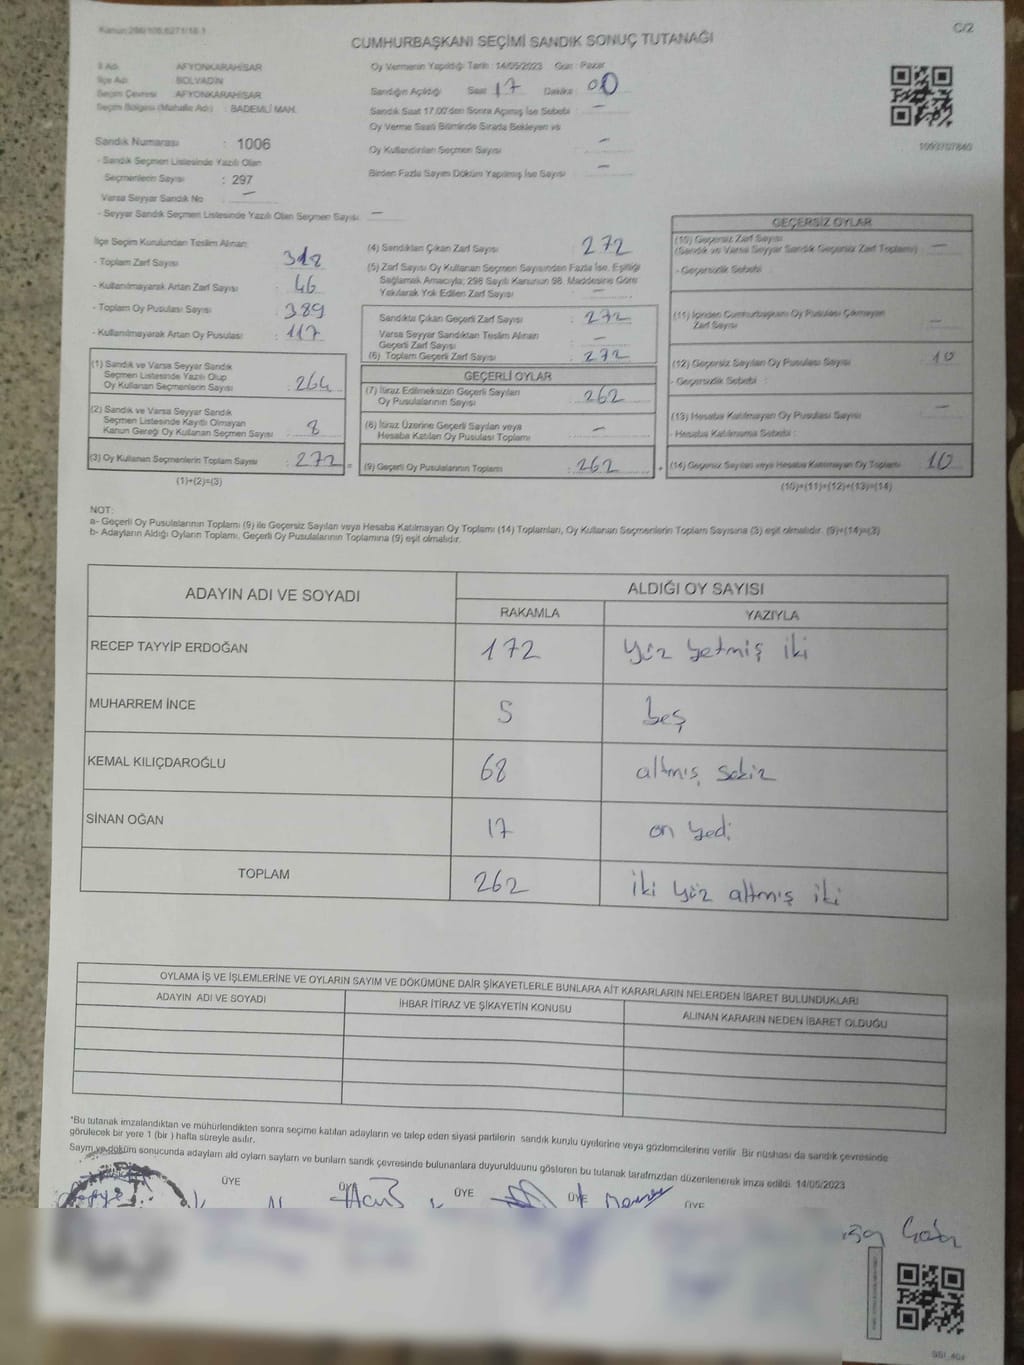 Kanun:298/106.6271/18.1
C/2
CUMHURBAŞKANI SEÇİMİ SANDIK SONUÇ TUTANAĞI
İl Adı AFYONKARAHİSAR
İlçe Adı BOLVADİN
Seçim Çevresi AFYONKARAHİSAR
Seçim Bölgesi (Mahalle Adı) : BADEMLİ MAH.
Sandık Numarası : 1006
- Sandık Seçmen Listesinde Yazılı Olan
Seçmenlerin Sayısı : 297
Varsa Seyyar Sandık No : —
- Seyyar Sandık Seçmen Listesinde Yazılı Olan Seçmen Sayısı —
Oy Vermenin Yapıldığı Tarih : 14/05/2023 Gün : Pazar
Sandığın Açıldığı Saat 17 Dakika : 00
Sandık Saat 17.00'den Sonra Açılmış İse Sebebi : —
Oy Verme Saati Bitiminde Sırada Bekleyen ve
Oy Kullandırılan Seçmen Sayısı —
Birden Fazla Sayım Döküm Yapılmış İse Sayısı —
1093707840
İlçe Seçim Kurulundan Teslim Alınan
- Toplam Zarf Sayısı : 318
- Kullanılmayarak Artan Zarf Sayısı : 46
- Toplam Oy Pusulası Sayısı : 389
- Kullanılmayarak Artan Oy Pusulası : 117
(1) Sandık ve Varsa Seyyar Sandık
Seçmen Listesinde Yazılı Olup
Oy Kullanan Seçmenlerin Sayısı : 264
(2) Sandık ve Varsa Seyyar Sandık
Seçmen Listesinde Kayıtlı Olmayan
Kanun Gereği Oy Kullanan Seçmen Sayısı : 8
(3) Oy Kullanan Seçmenlerin Toplam Sayısı : 272 =
(1)+(2)=(3)
(4) Sandıktan Çıkan Zarf Sayısı : 272
(5) Zarf Sayısı Oy Kullanan Seçmen Sayısından Fazla İse, Eşitliği
Sağlamak Amacıyla; 298 Sayılı Kanunun 98. Maddesine Göre
Yakılarak Yok Edilen Zarf Sayısı : —
Sandıkta Çıkan Geçerli Zarf Sayısı : 272
Varsa Seyyar Sandıktan Teslim Alınan
Geçerli Zarf Sayısı : —
(6) Toplam Geçerli Zarf Sayısı : 272
GEÇERLİ OYLAR
(7) İtiraz Edilmeksizin Geçerli Sayılan
Oy Pusulalarının Sayısı : 262
(8) İtiraz Üzerine Geçerli Sayılan veya
Hesaba Katılan Oy Pusulaları Toplamı : —
(9) Geçerli Oy Pusulalarının Toplamı : 262 +
GEÇERSİZ OYLAR
(10) Geçersiz Zarf Sayısı
(Sandık ve Varsa Seyyar Sandık Geçersiz Zarf Toplamı) : —
- Geçersizlik Sebebi :
(11) İçinden Cumhurbaşkanı Oy Pusulası Çıkmayan
Zarf Sayısı : —
(12) Geçersiz Sayılan Oy Pusulası Sayısı : 10
- Geçersizlik Sebebi :
(13) Hesaba Katılmayan Oy Pusulası Sayısı : —
- Hesaba Katılmama Sebebi :
(14) Geçersiz Sayılan veya Hesaba Katılmayan Oy Toplamı : 10
(10)+(11)+(12)+(13)=(14)
NOT:
a- Geçerli Oy Pusulalarının Toplamı (9) ile Geçersiz Sayılan veya Hesaba Katılmayan Oy Toplamı (14) Toplamları, Oy Kullanan Seçmenlerin Toplam Sayısına (3) eşit olmalıdır. (9)+(14)=(3)
b- Adayların Aldığı Oyların Toplamı, Geçerli Oy Pusulalarının Toplamına (9) eşit olmalıdır.
ADAYIN ADI VE SOYADI ALDIĞI OY SAYISI
RAKAMLA YAZIYLA
RECEP TAYYİP ERDOĞAN 172 yüz yetmiş iki
MUHARREM İNCE 5 beş
KEMAL KILIÇDAROĞLU 68 altmış sekiz
SİNAN OĞAN 17 on yedi
TOPLAM 262 iki yüz altmış iki
OYLAMA İŞ VE İŞLEMLERİNE VE OYLARIN SAYIM VE DÖKÜMÜNE DAİR ŞİKAYETLERLE BUNLARA AİT KARARLARIN NELERDEN İBARET BULUNDUKLARI
ADAYIN ADI VE SOYADI İHBAR İTİRAZ VE ŞİKAYETİN KONUSU ALINAN KARARIN NEDEN İBARET OLDUĞU
*Bu tutanak imzalandıktan ve mühürlendikten sonra seçime katılan adayların ve talep eden siyasi partilerin sandık kurulu üyelerine veya gözlemcilerine verilir. Bir nüshası da sandık çevresinde
görülecek bir yere 1 (bir ) hafta süreyle asılır.
Sayım ve döküm sonucunda adayların ald oyların sayların ve bunların sandk çevresinde bulunanlara duyurulduunu gösteren bu tutanak tarafmzdan düzenlenerek imza edildi. 14/05/2023
ÜYE ÜYE ÜYE ÜYE ÜYE